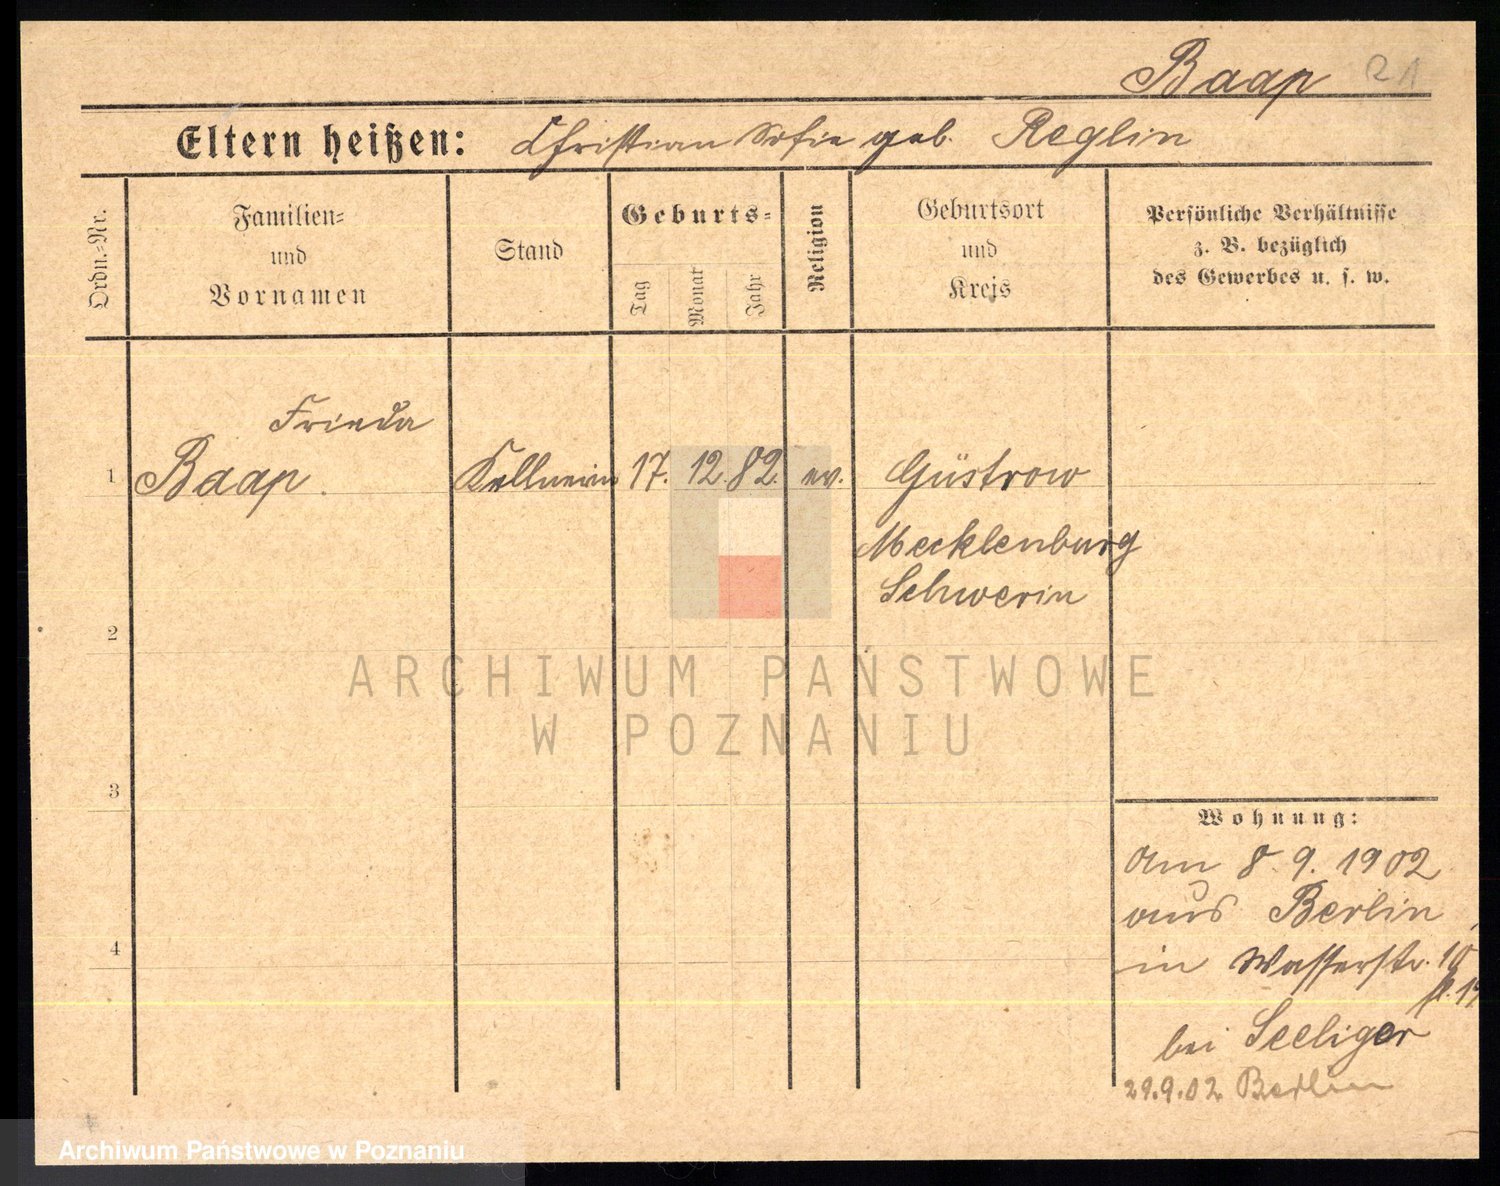 Baap 21
Eltern heißen: Christian Sofie geb. Reglin
Ordn.-Nr.
Familien-
und
Vornamen
Stand
Geburts-
Tag
Monat
Jahr
Religion
Geburtsort
und
Kreis
Persönliche Verhältnisse
z. B. bezüglich
des Gewerbes u. s. w.
Frieda
1 Baap. Kellnerin 17. 12. 82. ev. Güstrow
Mecklenburg
Schwerin
2
ARCHIWUM PAŃSTWOWE
W POZNANIU
3
Wohnung:
Am 8. 9. 1902
aus Berlin,
4
in Wasserstr. 10
bei Seeliger
29.9.02 Berlin
Archiwum Państwowe w Poznaniu